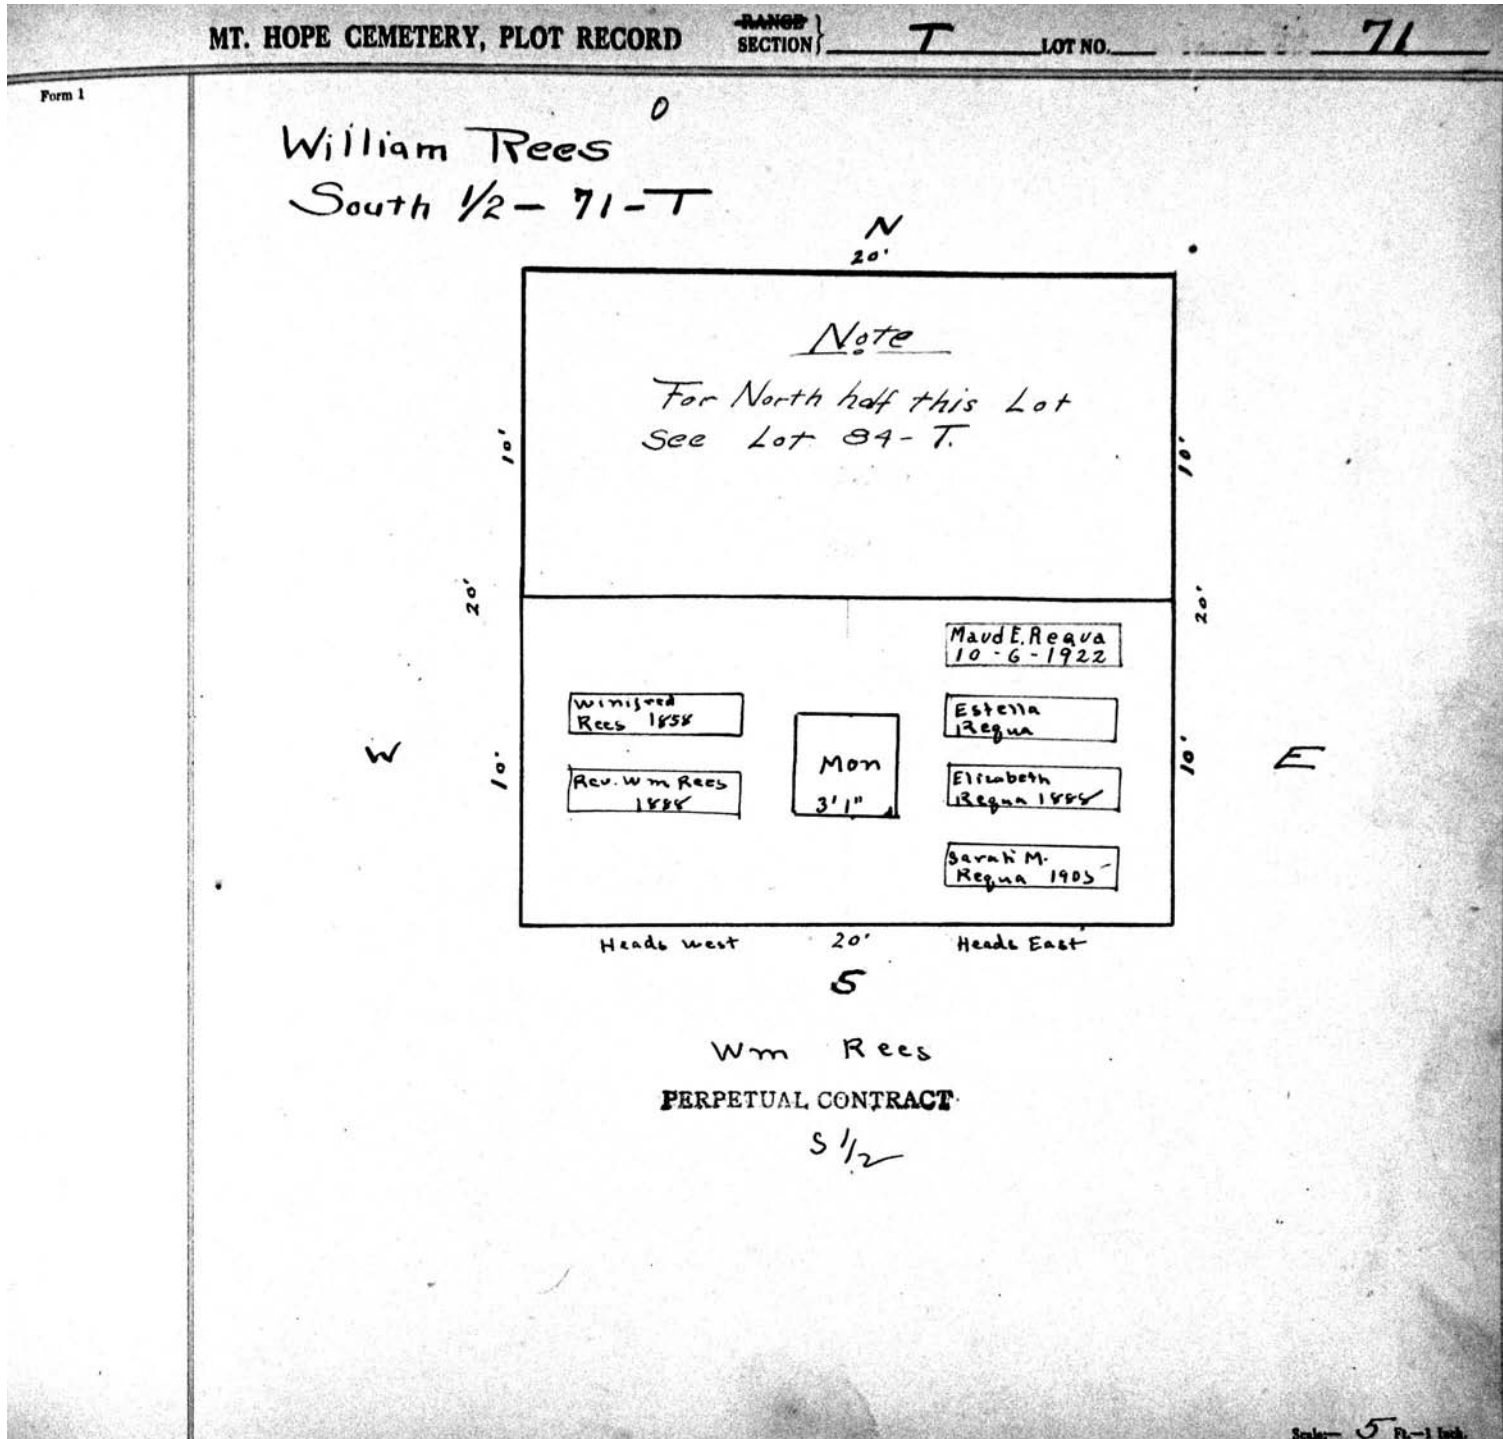 MT. HOPE CEMETERY, PLOT RECORD RANGE SECTION} T LOT NO. 71
Form 1
O
William Rees
South 1/2 - 71 - T
N
20'
Note
For North half this Lot
See Lot 84 - T.
10'
10'
20'
20'
Maud E. Requa
10 - 6 - 1922
Winifred
Rees 1858
Estella
Requa
W
10'
Mon
3'1"
10'
E
Rev. Wm Rees
1888
Elizabeth
Requa 1888
Sarah M.
Requa 1905
Heads West 20' Heads East
S
Wm Rees
PERPETUAL CONTRACT
S 1/2
Scale:— 5 Ft.—1 Inch.